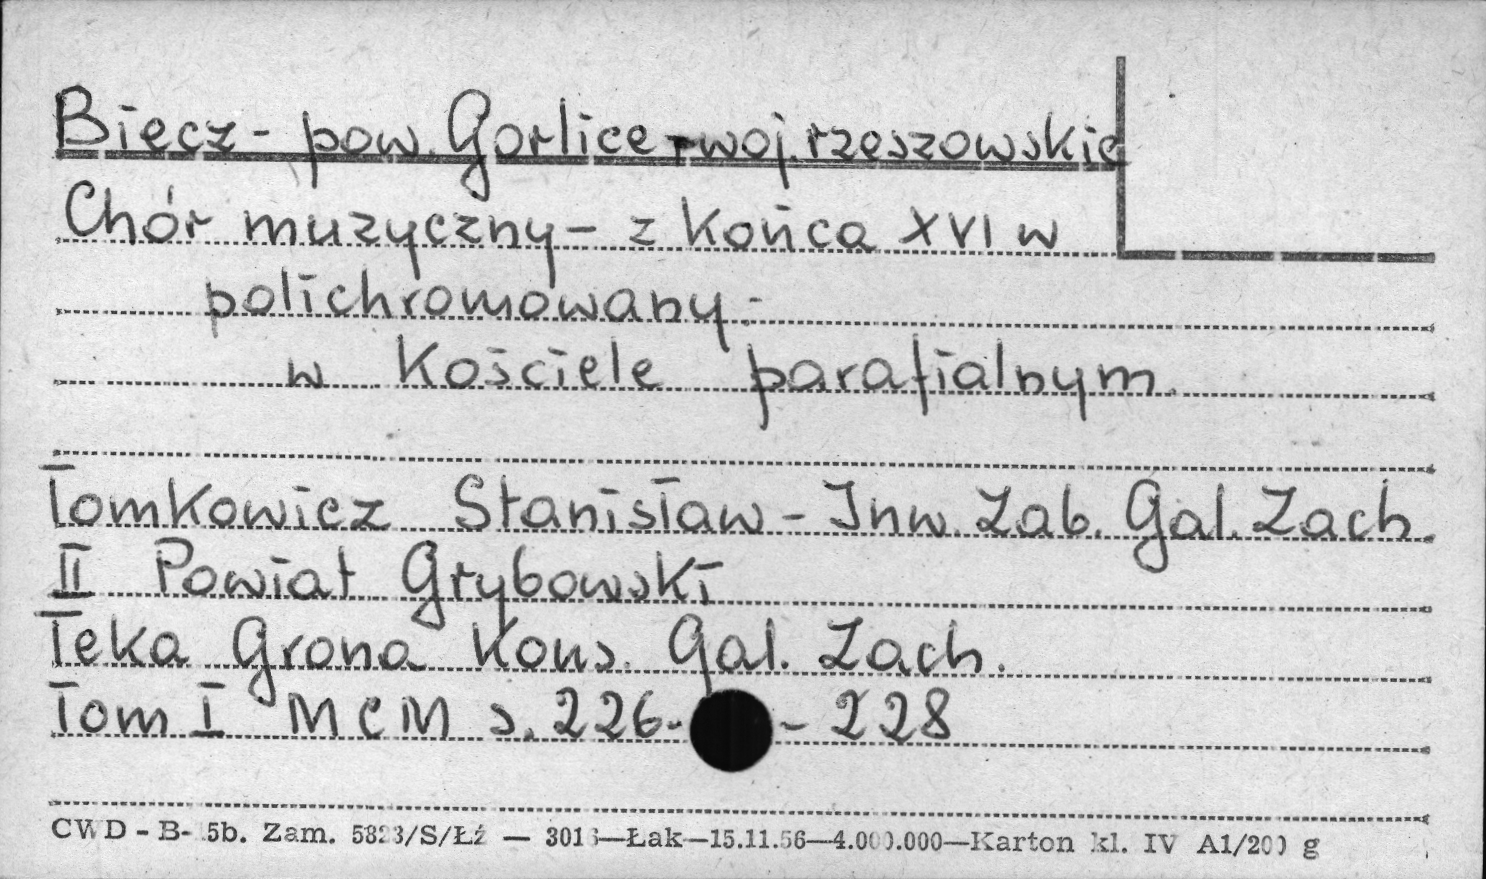 Biecz - pow. Gorlice - woj. rzeszowskie
Chór muzyczny - z końca XVI w
polichromowany -
w Kościele parafialnym.
Tomkowicz Stanisław - Inw. Zab. Gal. Zach.
II Powiat Grybowski
Teka Grona Kons. Gal. Zach.
Tom I MCM s. 226- - 228
CWD - B- 5b. Zam. /S/Łź — —Łak—15.11.56—4.000.000—Karton kl. IV A1/200 g